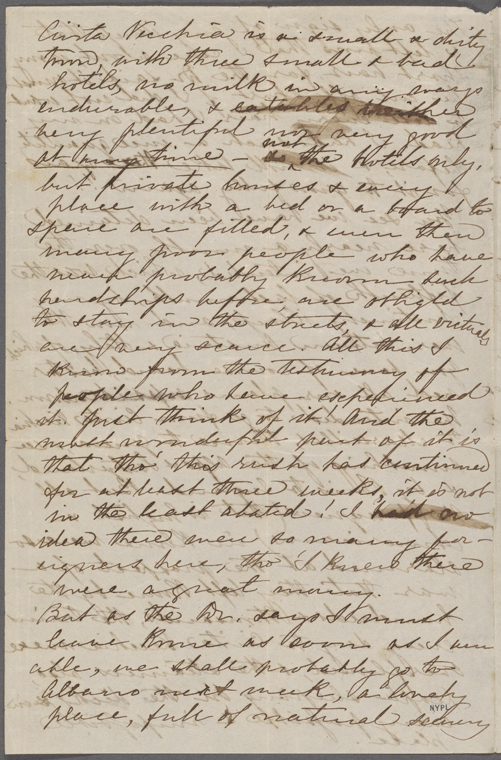 Civita Vecchia is a small & dirty
town, with three small & bad
hotels, no milk in any ways
endurable, & eatables neither
very plentiful nor very good
at any time — not the hotels only,
but private houses & every
place with a bed or a board to
spare are filled, & even then
many poor people who have
never probably known such
hardships before are obliged
to stay in the streets, & all victuals
are very scarce. All this I
know from the testimony of
people who have experienced
it. Just think of it! And the
most wonderful part of it is
that tho' this rush has continued
for at least three weeks, it is not
in the least abated! I had no
idea there were so many for-
eigners here, tho' I knew there
were a great many.
But as the Dr. says I must
leave Rome as soon as I am
able, we shall probably go to
Albano next week, a lovely
place, full of natural scenery
NYPL